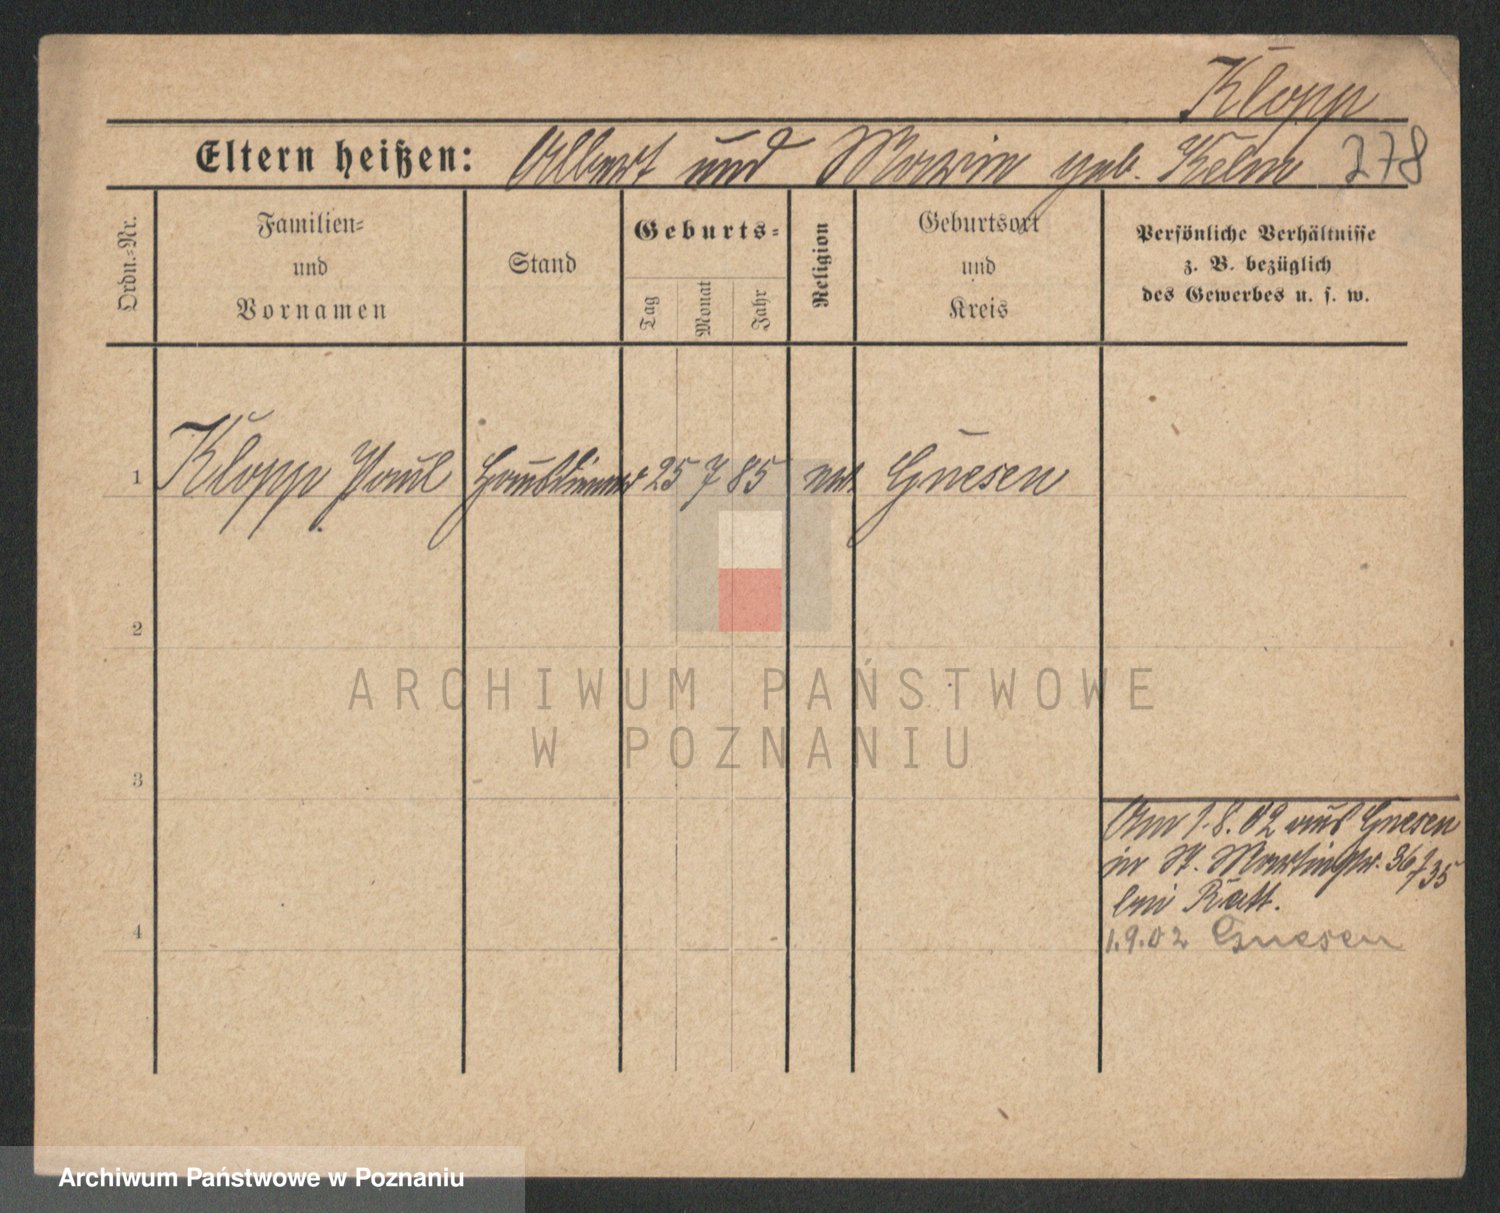 Klopp
Eltern heißen: Albert und Marie geb. Kelm 278
Ordn.-Nr.
Familien-
und
Vornamen
Stand
Geburts-
Tag
Monat
Jahr
Religion
Geburtsort
und
Kreis
Persönliche Verhältnisse
z. B. bezüglich
des Gewerbes u. s. w.
1 Klopp Paul Hausdiener 25 7 85 ev. Gnesen
2
ARCHIWUM PAŃSTWOWE
W POZNANIU
3
Am 1.8.02 aus Gnesen
in St. Martinstr. 36
bei Ratt.
4
1.9.02 Gnesen
Archiwum Państwowe w Poznaniu